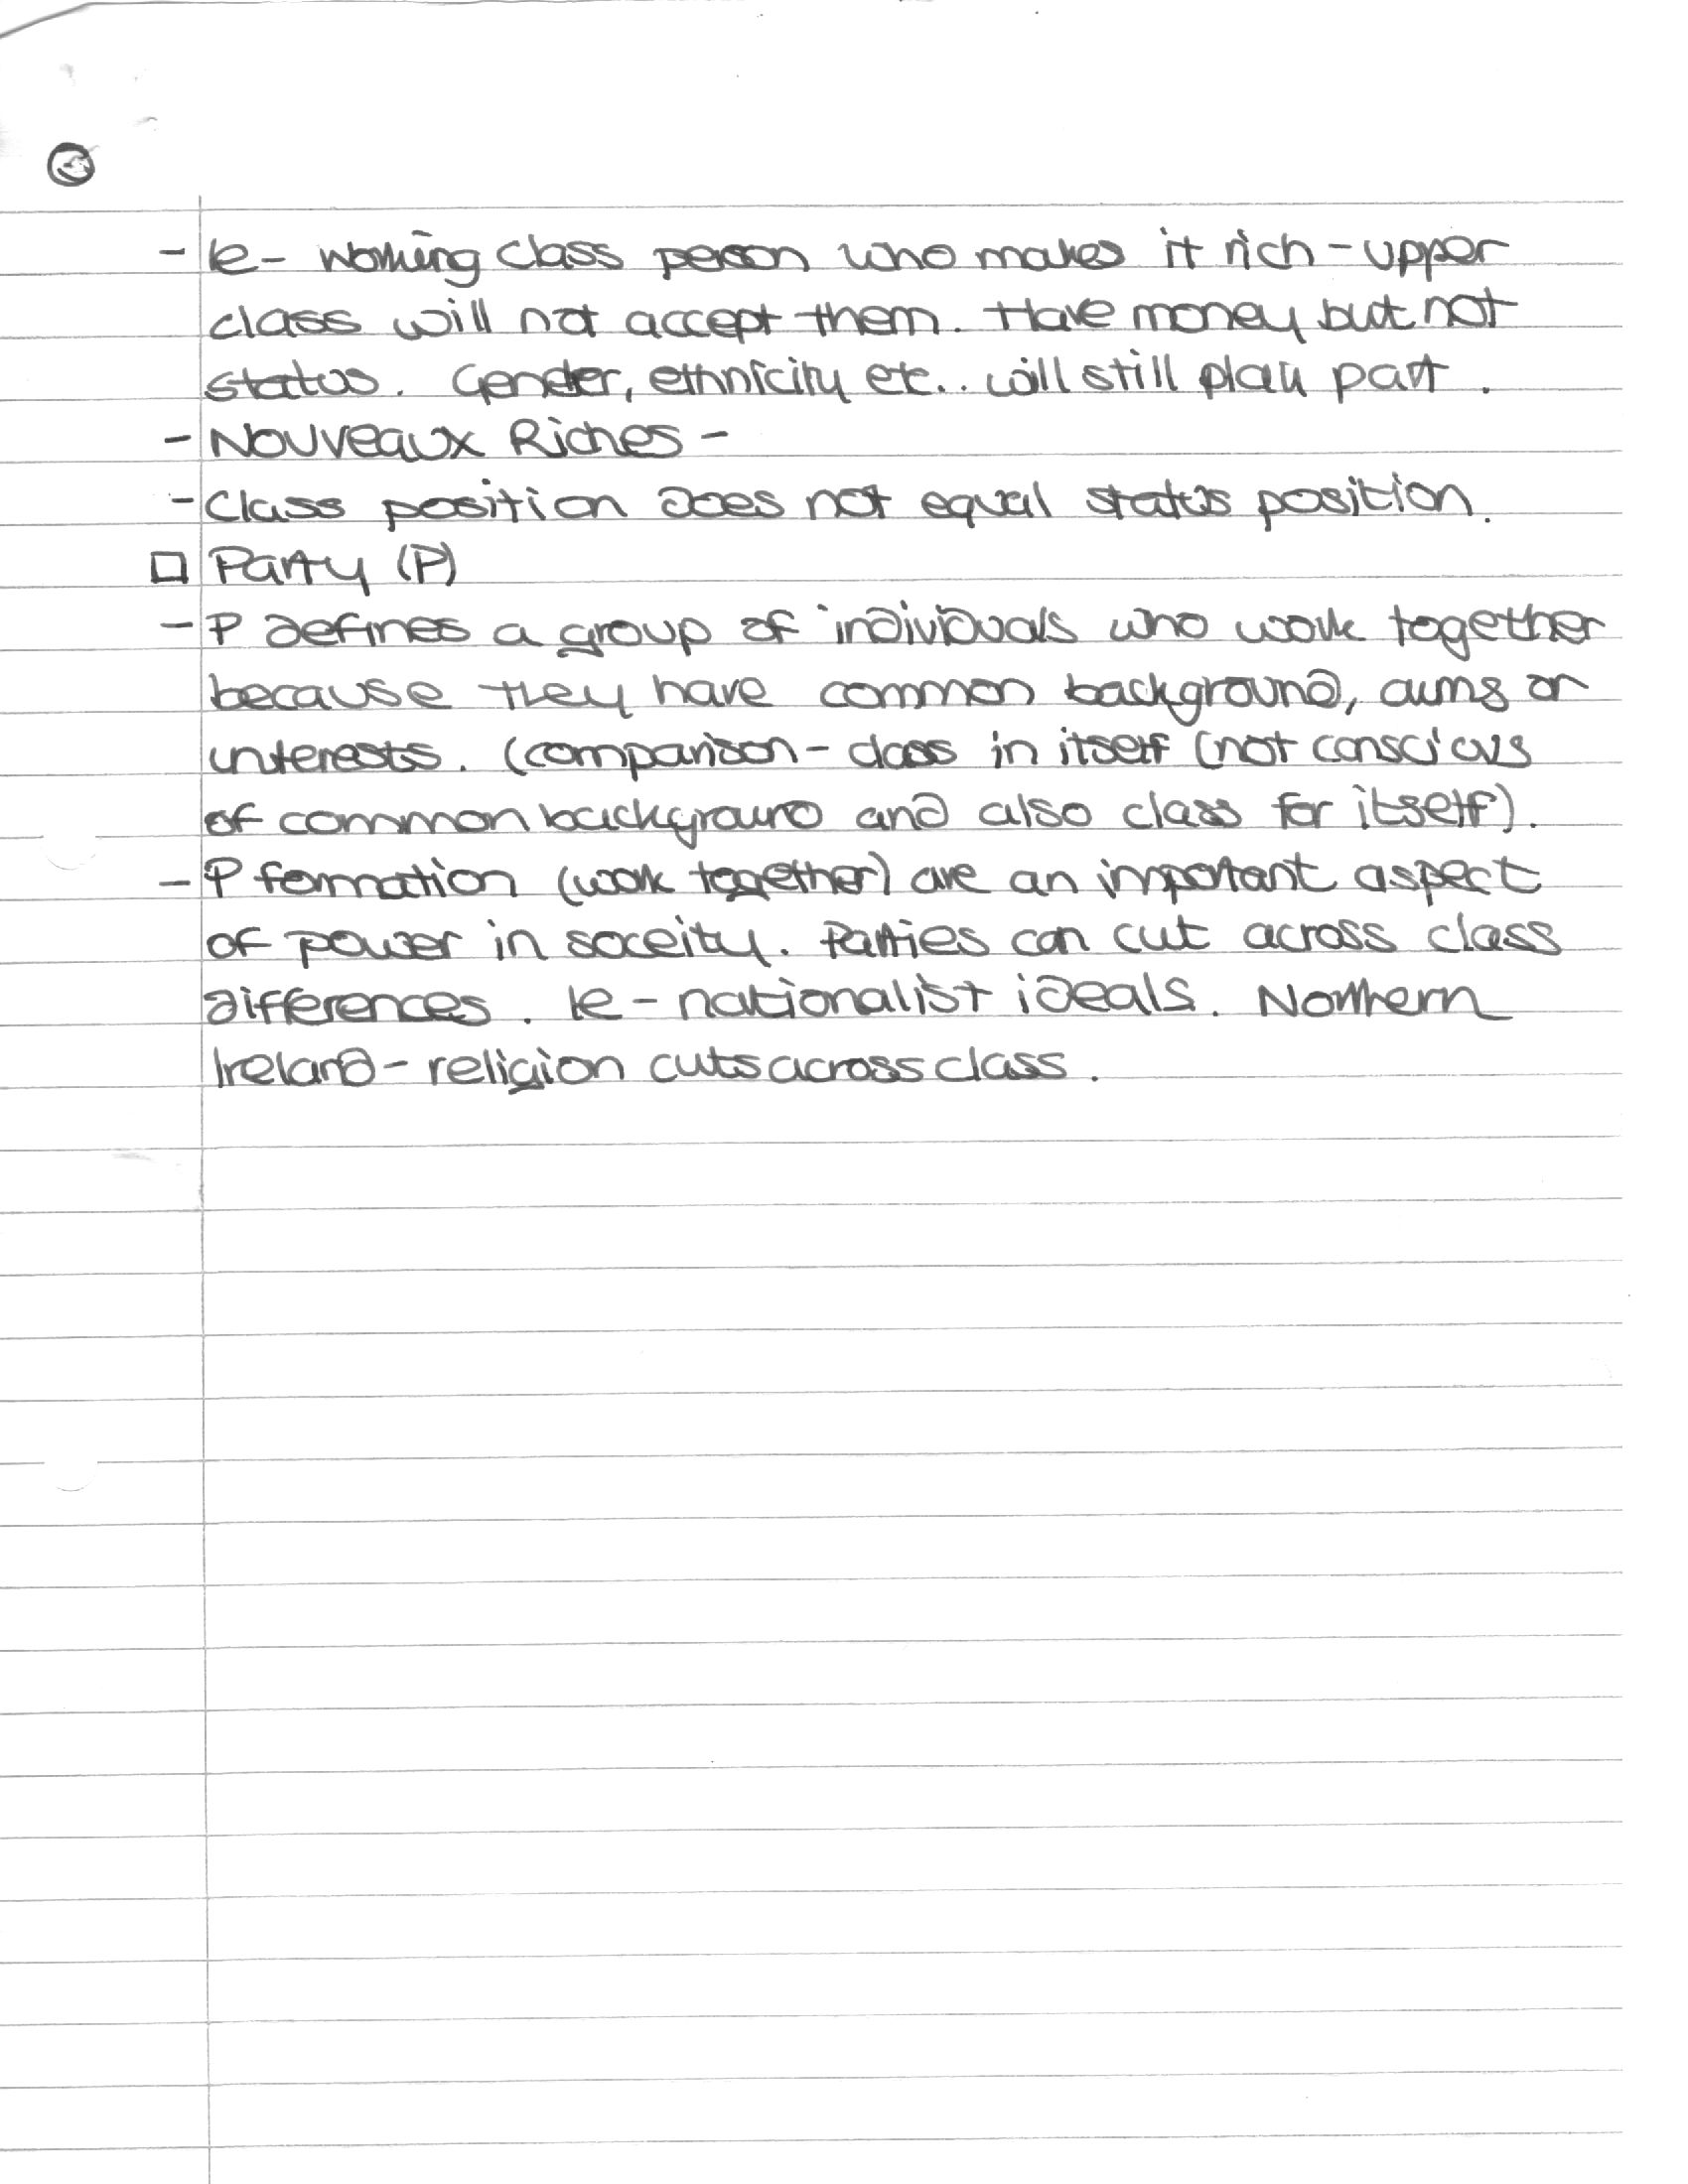 - Ie - Working class person who makes it rich - upper
class will not accept them. Have money but not
status. Gender, ethnicity etc.. will still play part.
- Nouveaux Riches -
- Class position does not equal status position.
□ Party (P)
- P defines a group of individuals who work together
because they have common background, aims or
interests. (comparison - class in itself (not conscious
of common background and also class for itself).
- P formation (work together) are an important aspect
of power in soceity. Parties can cut across class
differences. Ie - nationalist ideals. Northern
Ireland - religion cuts across class.